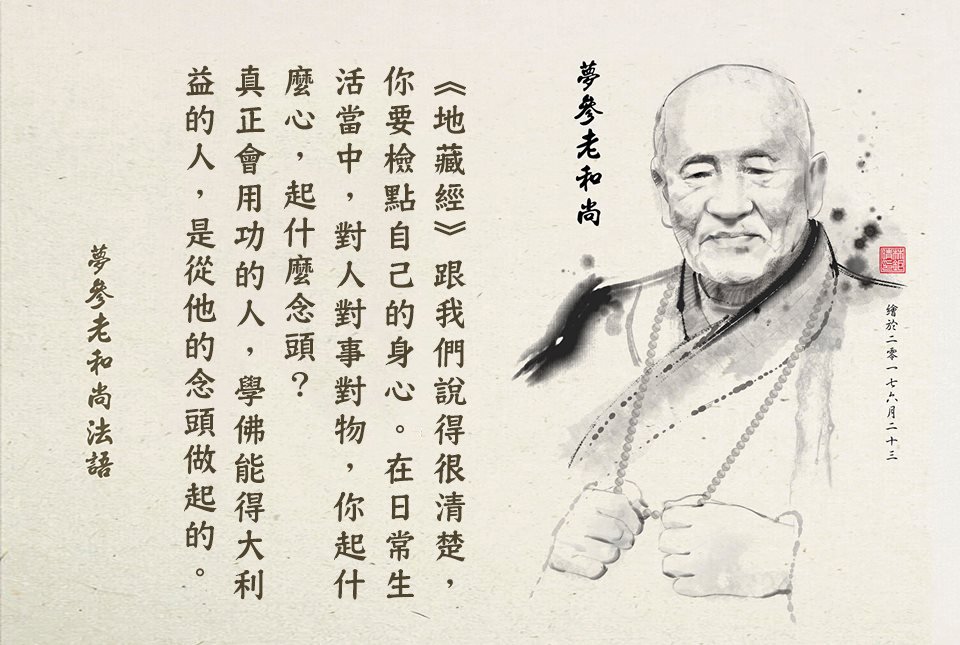 夢參老和尚
繪於二零一七六月二十三
《地藏經》跟我們說得很清楚，
你要檢點自己的身心。在日常生
活當中，對人對事對物，你起什
麼心，起什麼念頭？
真正會用功的人，學佛能得大利
益的人，是從他的念頭做起的。
夢參老和尚法語